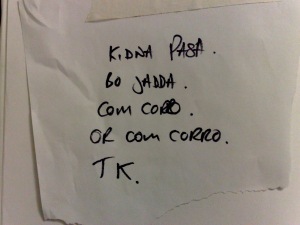 KIDNA PASA.
BO JADDA.
COM CORRO.
OR COM CORRO.
TK.